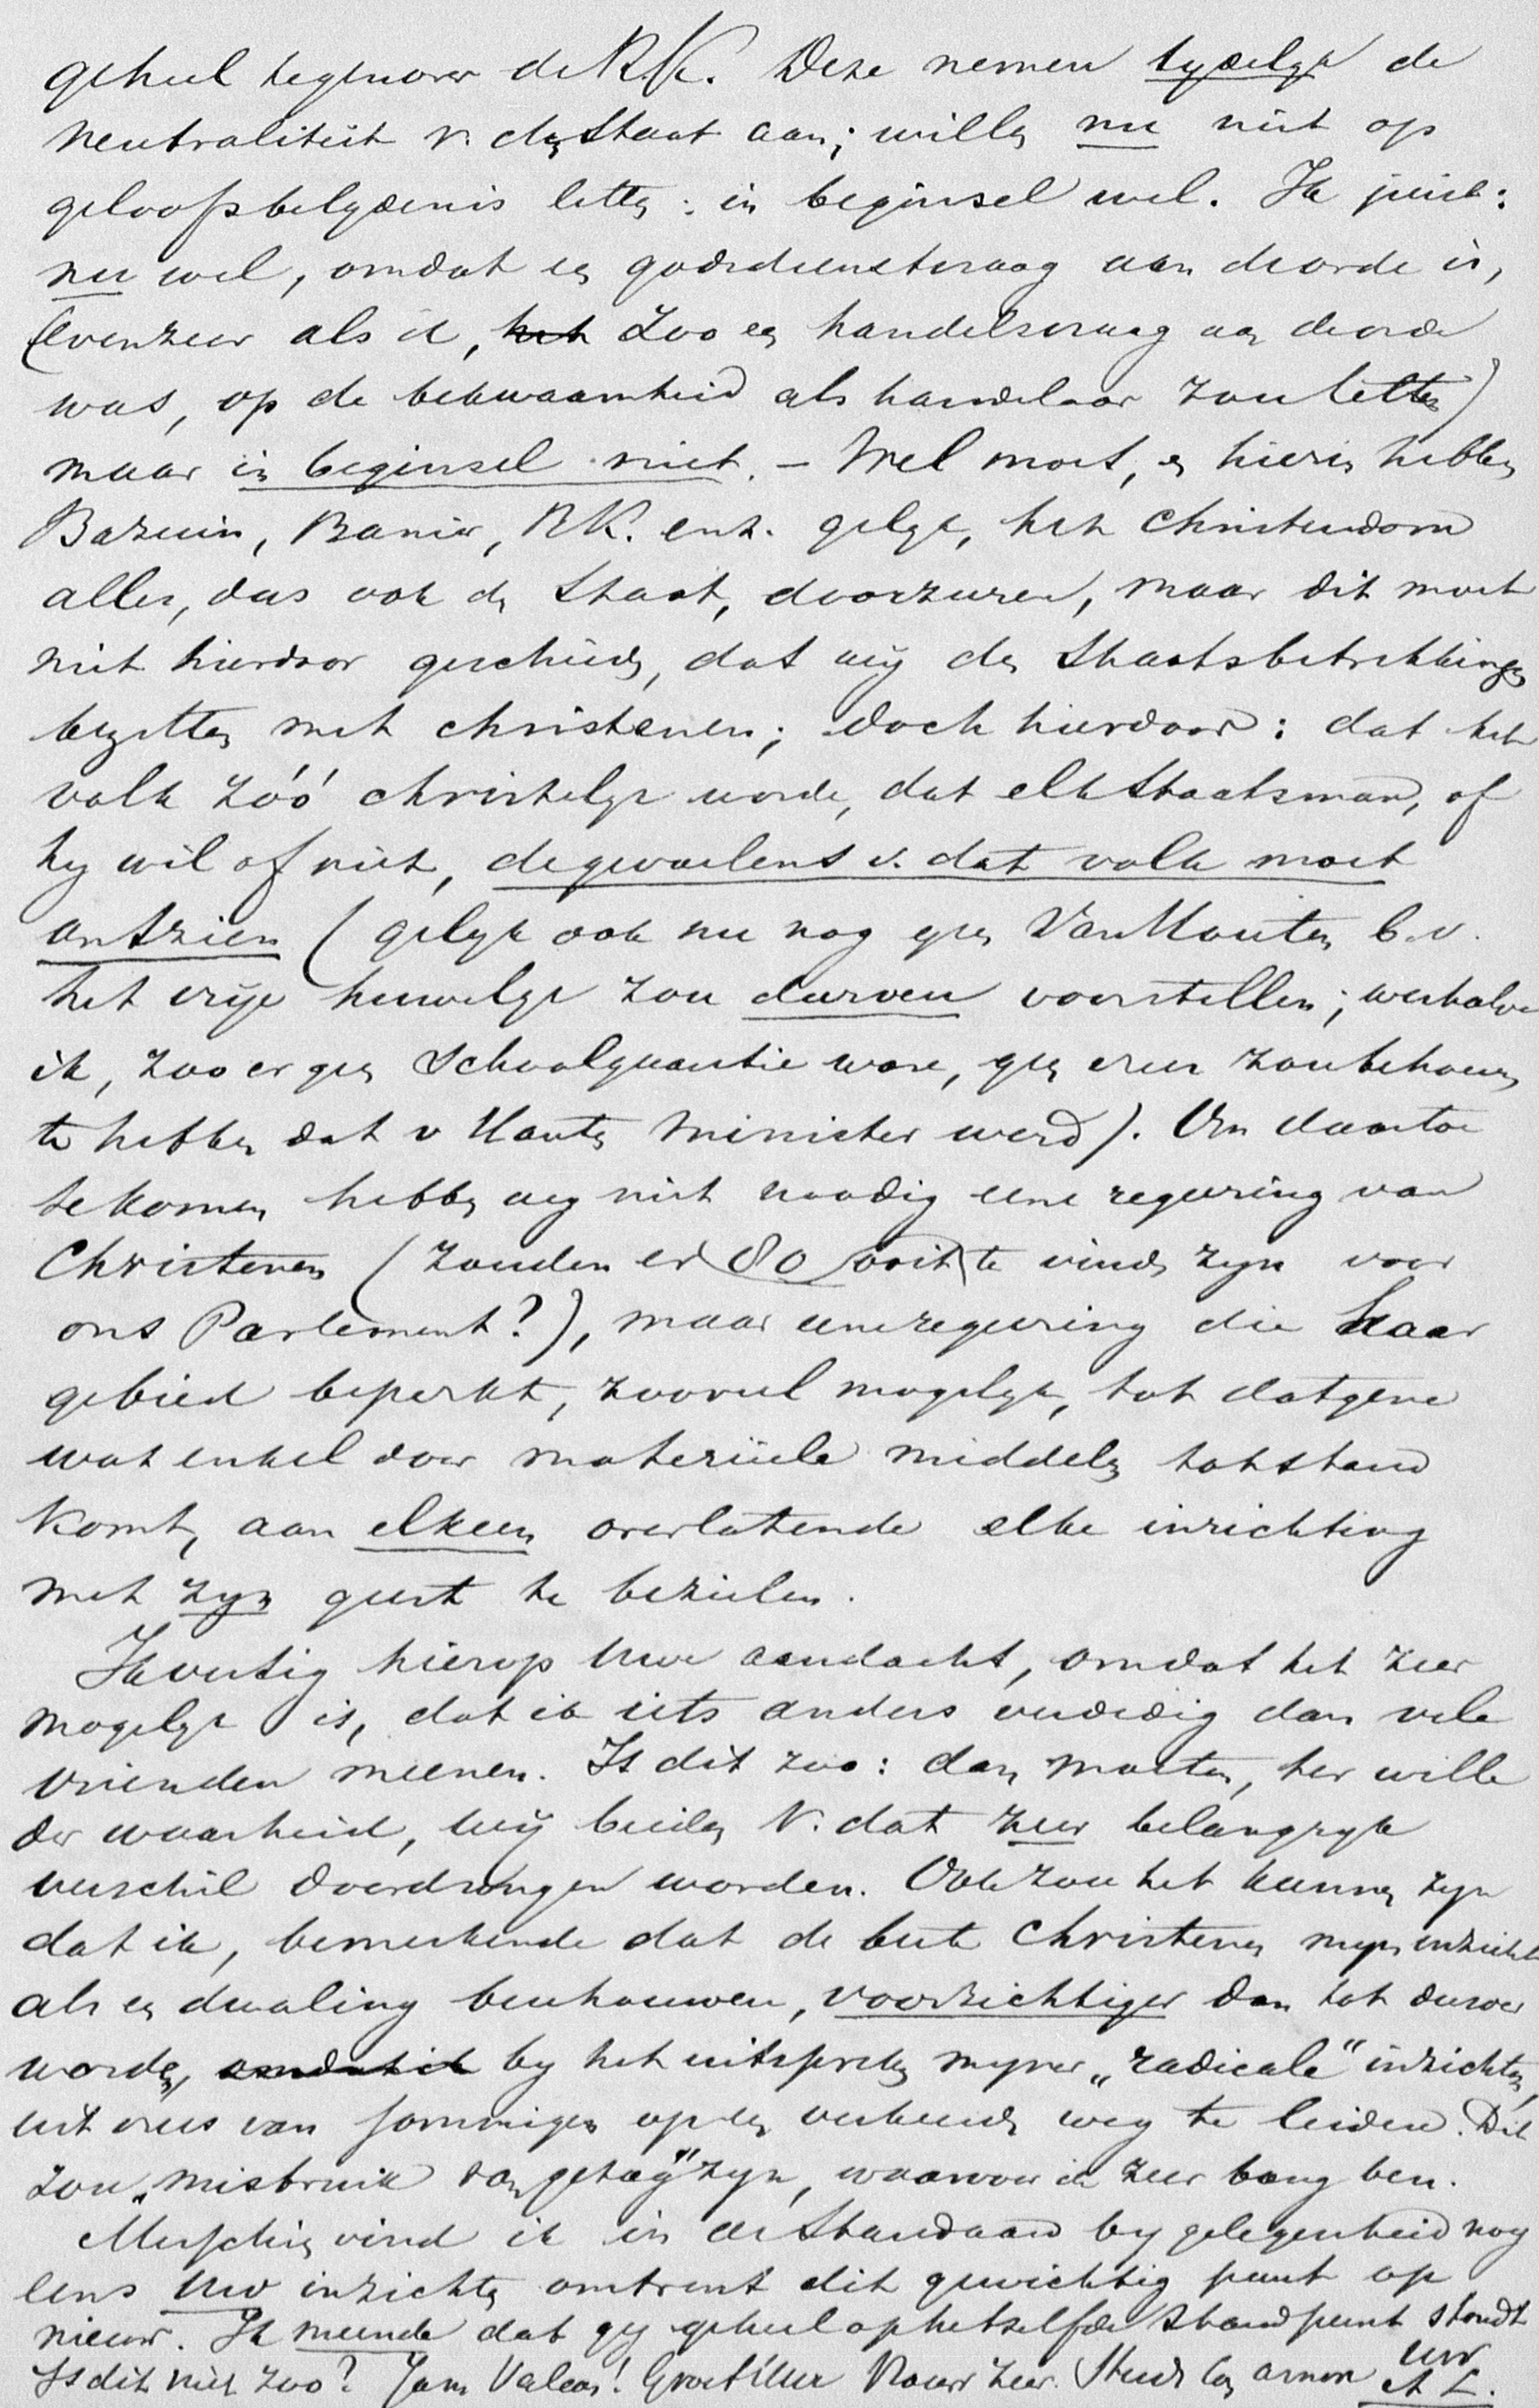 geheel tegenover de RK. Deze nemen tydelyk de
neutraliteit v. den Staat aan; willen nu niet op
geloofsbelydenis letten: in beginsel wel. Ik juist:
nu wel, omdat een godsdienstvraag aan de orde is,
(evenzeer als ik, het zoo een handelsvraag aan de orde
was, op de bekwaamheid als handelaar zou letten)
maar in beginsel niet. – Wel moet, en hierin hebben
Bazuin, Banier, RK. enz. gelyk, het Christendom
alles, dus ook den Staat, doorzuren, maar dit moet
niet hierdoor geschieden, dat wij de Staatsbetrekkingen
bezetten met christenen; doch hierdoor: dat het
volk zóó christelyk worde, dat elk Staatsman, of
hy wil of niet, de gevoelens v. dat volk moet
ontzien (gelyk ook nu nog geen Van Houten b.v.
het vrije huwelyk zou durven voorstellen; weshalve
ik, zoo er geen Schoolquaestie ware, geen vrees zou behoeven
te hebben dat v Houten Minister werd). Om daartoe
te komen hebben wy niet noodig eene regeering van
Christenen (zouden er 80 ooit te vinden zyn voor
ons Parlement?), maar eene regeering die haar
gebied beperkt, zooveel mogelyk, tot datgene
wat enkel door materieele middelen tot stand
komt, aan elkeen overlatende elke inrichting
met zyn geest te bezielen.
Ik vestig hierop Uwe aandacht, omdat het zeer
mogelyk is, dat ik iets anders verdedig dan vele
vrienden meenen. Is dit zoo: dan moeten, ter wille
der waarheid, wij beiden v. dat zeer belangryk
verschil doordrongen worden. Ook zou het kunnen zyn
dat ik, bemerkende dat de beste Christenen myn inzicht
als een dwaling beschouwen, voorzichtiger dan tot dusver
worde, omdat ik by het uitspreken myner „radicale" inzichten,
uit vrees van sommigen op een verkeerden weg te leiden. Dit
zou „misbruik van gezag" zyn, waarvoor ik zeer bang ben.
Misschien vind ik in de Standaard by gelegenheid nog
eens Uw inzichten omtrent dit gewichtig punt op
nieuw. Ik meende dat gy geheel op hetzelfde standpunt stondt
Is dit niet zoo? Jam Valeas! Groet Uwe Vrouw zeer. Uw
A L.